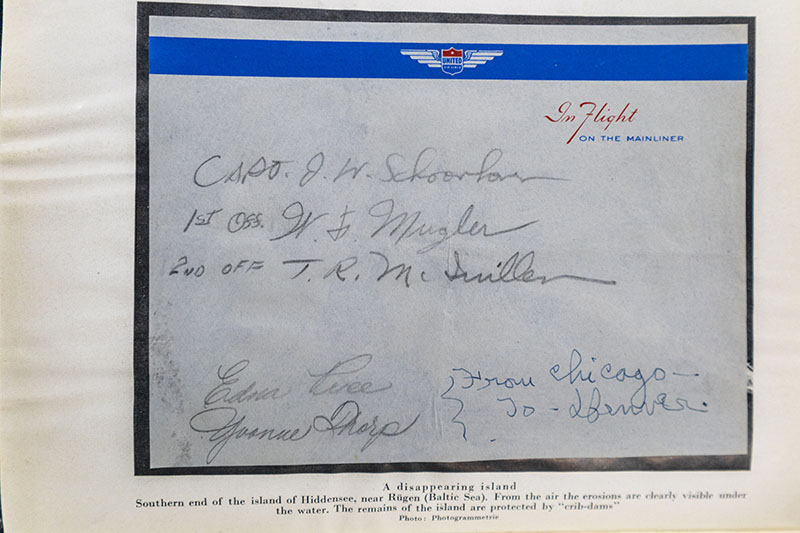 UNITED
AIR LINES
In Flight
ON THE MAINLINER
Capt. J. W. Schoonhoven
1ST Off. W. F. Mugler
2ND OFF T. R. Mc
Edna
Yvonne Tharp
From Chicago —
To - Denver.
A disappearing island
Southern end of the island of Hiddensee, near Rügen (Baltic Sea). From the air the erosions are clearly visible under
the water. The remains of the island are protected by "crib-dams"
Photo: Photogrammetrie